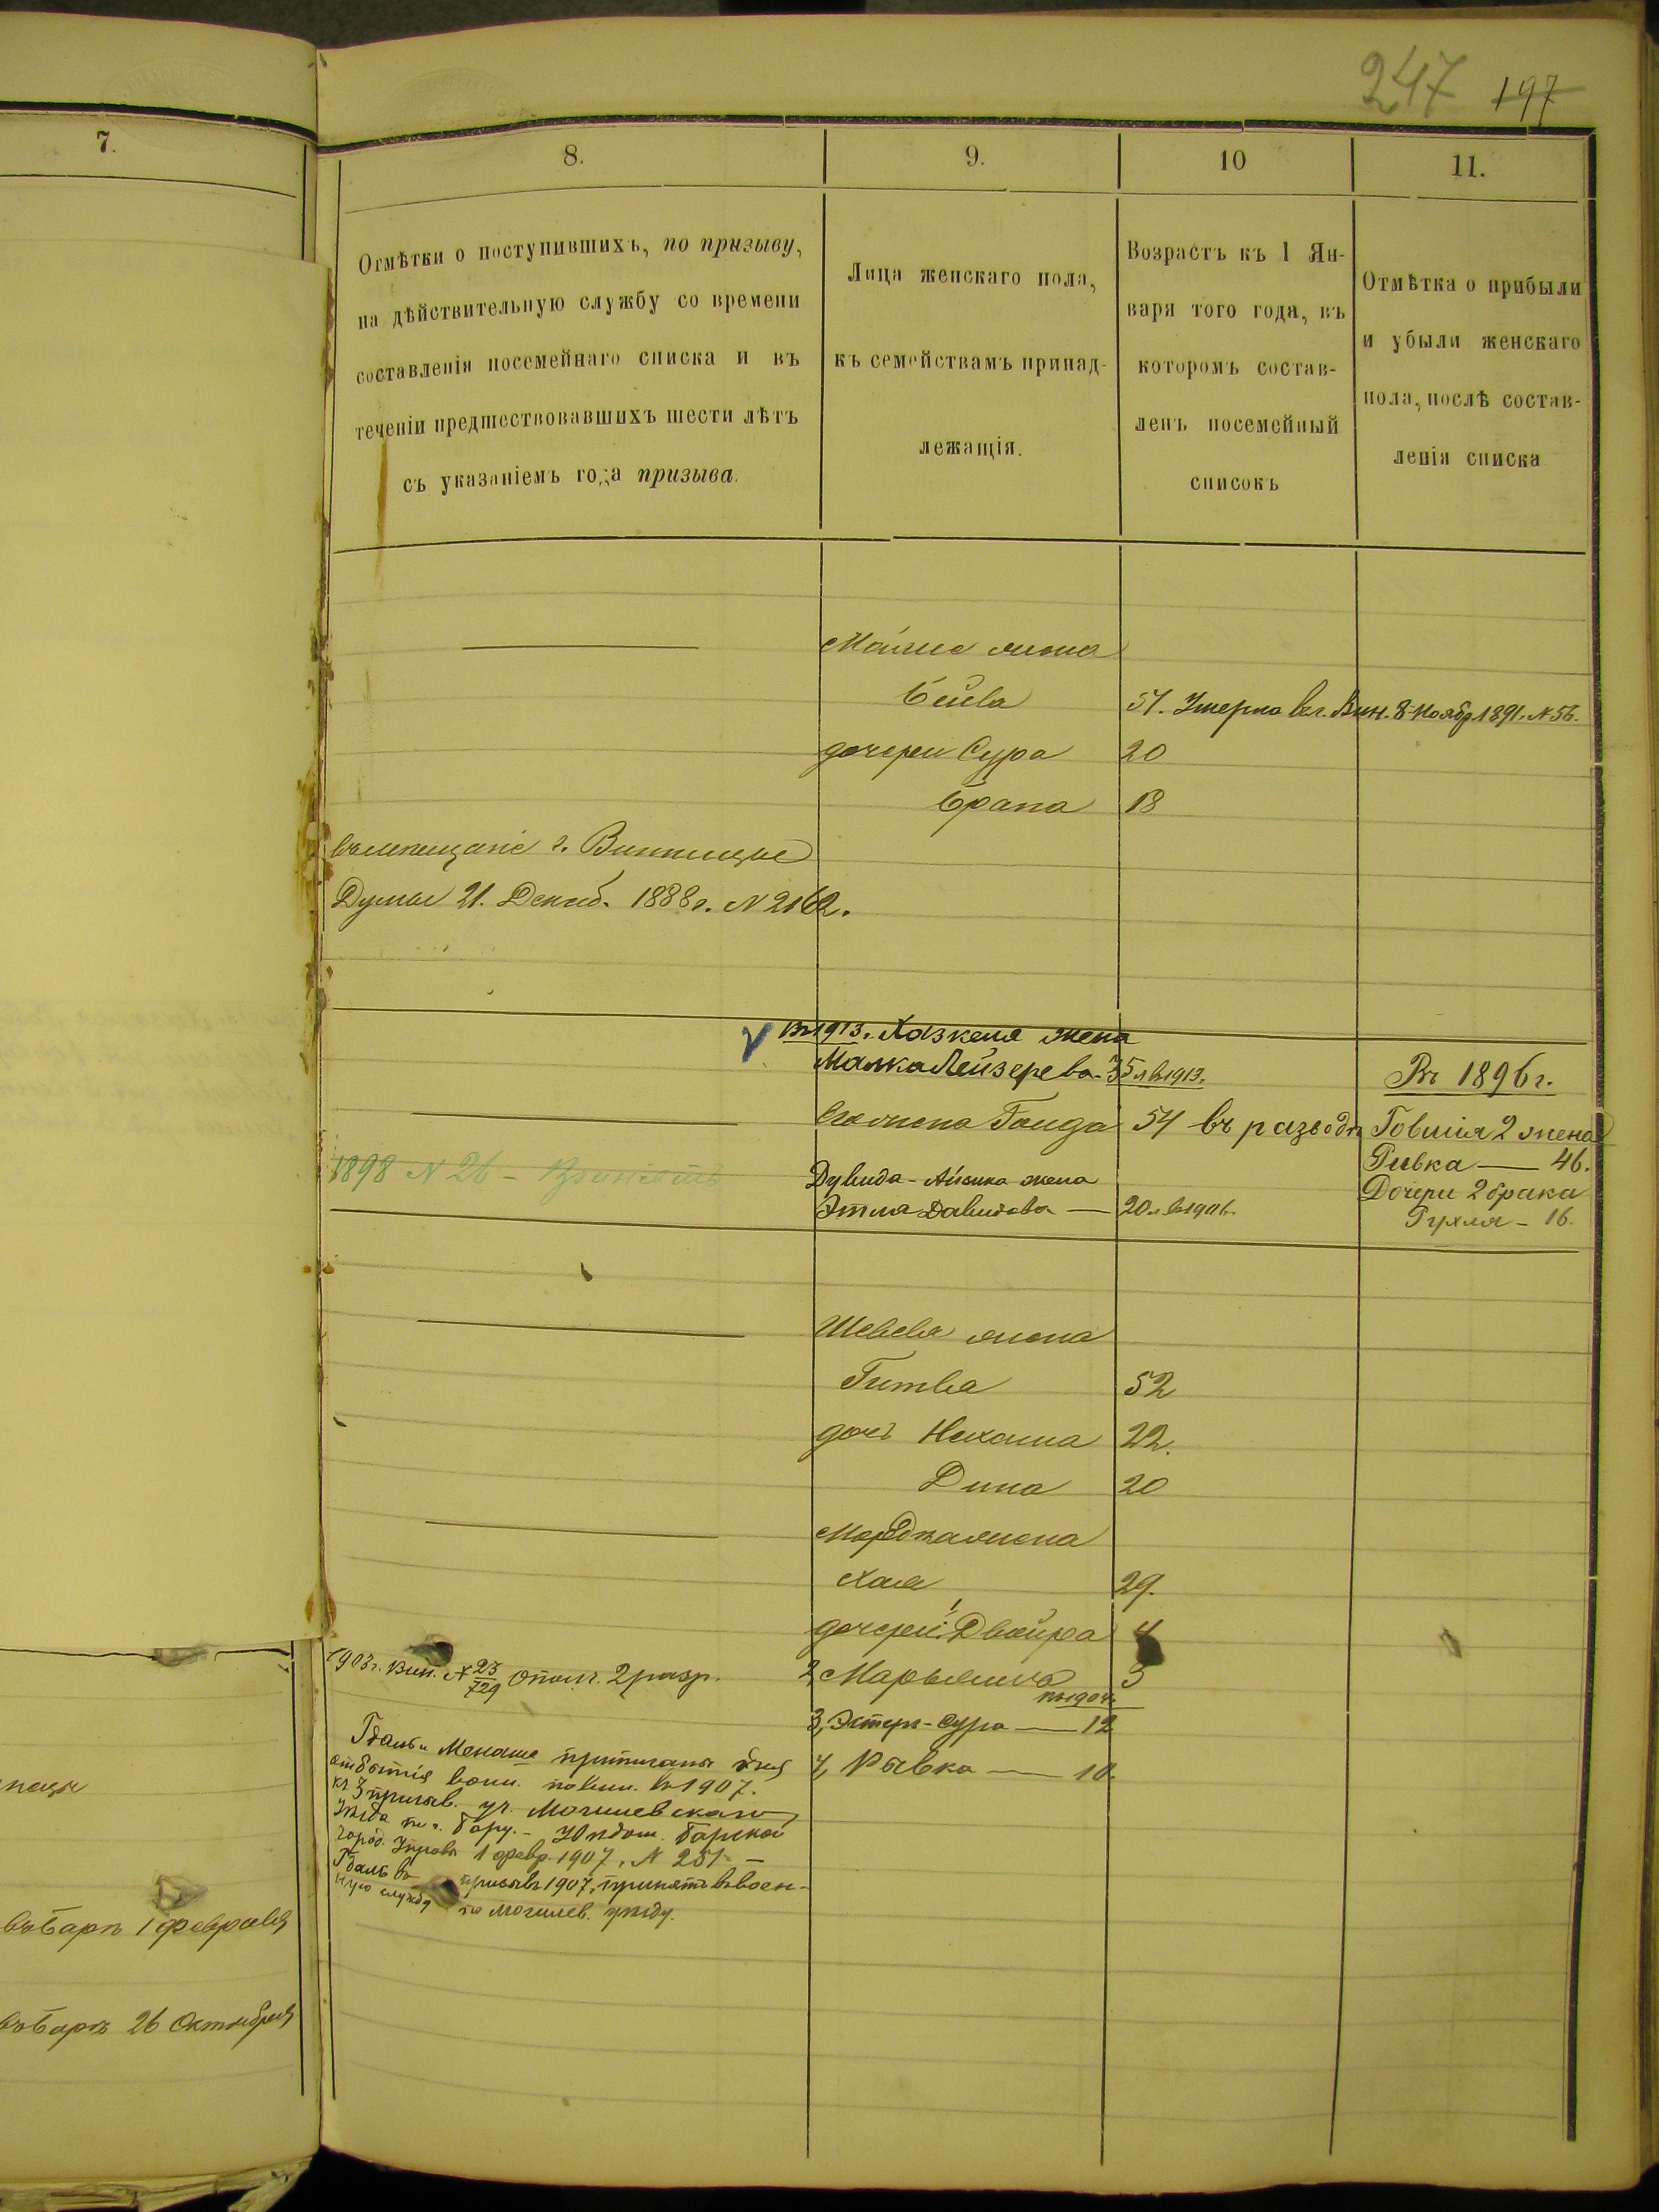 247 197
7.
8.
9.
10
11.
Отмѣтки о поступившихъ, по призыву,
на дѣйствительную службу со времени
составленія посемейнаго списка и въ
теченіи предшествовавшихъ шести лѣтъ
съ указаніемъ года призыва.
Лица женскаго пола,
къ семействамъ принад-
лежащія.
Возрастъ къ 1 Ян-
варя того года, въ
которомъ состав-
ленъ посемейный
списокъ
Отмѣтка о прибыли
и убыли женскаго
пола, послѣ состав-
ленія списка
жена
Бейла 51. Умерла в г. Вин. 8 Ноябр 1891. N 56.
дочери Сура 20
Брана 18
г. Винницы
Думы 21. Декаб. 1888 г. N 2162.
V Въ 1913. Хазкеля жена
Малка Лейзерева 35 л в 1913.
Въ 1896 г.
Его жена Голда 54 въ разводѣ
Говшия 2 жена
Ривка — 46.
Дочери 2 брака
Рухля - 16.
1898 N 26 - Принятъ
Дувида - Айзика жена
Этля Давидова — 20 л в 1906.
жена
Гитля 52
дочь Нехама 22.
Дина 20
Мордка жена
Хая 29.
дочери: 1, Двойра 4
2, Марьяша 3
въ 1904
3, Эстер-Сура — 12
4, Рывка — 10.
1903 г. Вин. N 23/729 Ополч. 2 разр.
Гдаль и Менаше приписаны для
отбытія воин. повин. въ 1907.
къ 3 призыв. уч. Могилевскаго
уѣзда по г. Бару. - Увѣдом. Барской
город. Управы 1 февр. 1907, N 251 —
Гдаль въ призывъ 1907, принятъ въ воен-
ную службу по Могилев. уѣзду.
въ Барѣ 1 февраля
въ Барѣ 26 Октября